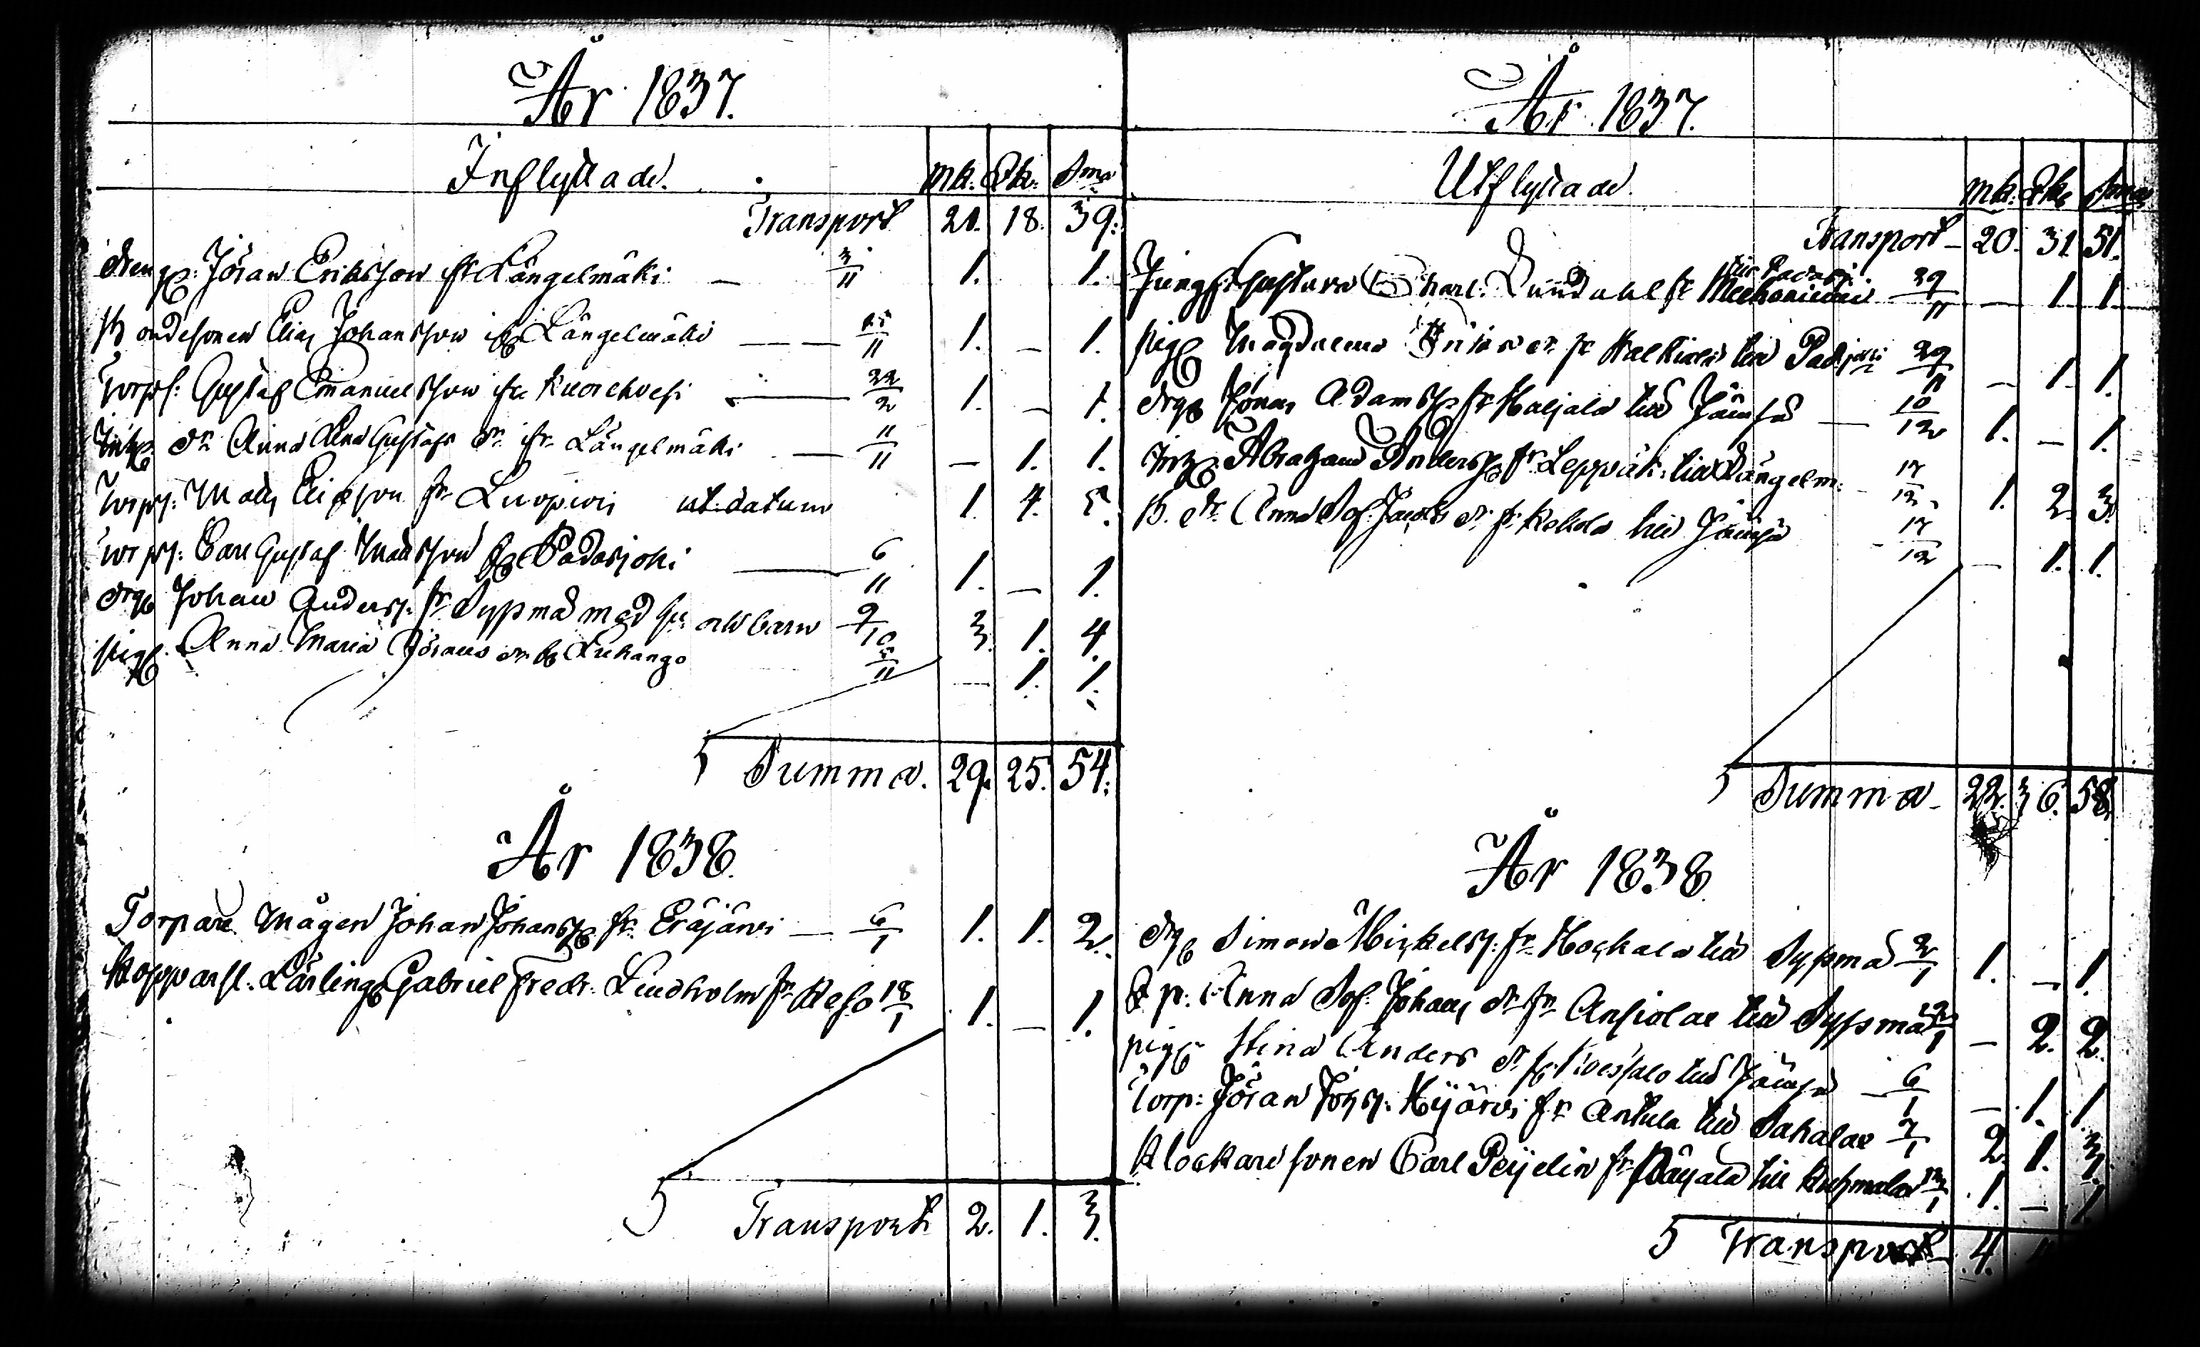 År 1837.
Inflyttade. mk. Qk. Sma
Transport 20. 18. 39.
Dreng. Jöran Eriksson fr Längelmäki — 3/11 1. 1.
Bondesonen Elias Johansson fr Längelmäki — — 15/11 1. — 1.
Torps. Gustaf Emanuelsson fr Kuorehvesi — 22/2 1. — 1.
dr Anna Lena Gustafs dr fr Längelmäki — 11/11 — 1. 1.
Torps: Mats Ericsson fr Luopiois ut datum 1. 4. 5.
Torps: Carl Gustaf Mattsson fr Padasjoki — 6/11 1. — 1.
drg Johan Anders. fr Sysmä med hu: och barn 9/10 3. 1. 4.
pig Anna Maria Jörans dr fr Luhango 5/11 — 1. 1.
Summa. 29. 25. 54.
År 1838.
Torpare Mågen Johan Johans. fr. Eräjärvi — 6/1 1. 1. 2.
Kopparsl. Lärling Gabriel Fredr. Lindholm fr Keso 18/1 1. — 1.
Transport 2. 1. 3.
År 1837.
Utflyttade. mk. Qk. Sma
Transport — 20. 31. 51.
till Padasj
Jungf. Gustava Charl. Lundahl fr 29/11 — 1 1.
pig Magdalena fr till Padasjoki 29/11 — 1 1.
drg Jonas Adams. fr Haljala till Jämsä — 10/12 1. — 1.
Abraham Anders. fr Leppäk. till Längelm. 17/12 1. 2. 3.
B. dr Anna Sof. Jacobs dr fr Kokola till Jämsä 17/12 — 1. 1.
Summa. 22. 36. 58.
År 1838.
drg Simon Michels. fr Hockala till Sysmä 2/1 1. — 1.
p: Anna Sof. Johans dr fr Ansiolae till Sysmä — 2. 2.
pig Stina Anders dr fr till Jämsä — 6/1 — 1. 1.
Torp: Jöran Hyjärvi fr Anttila till Sahalax 7/1 2. 1. 3.
Klockare sonen Carl Peijelin fr Päyälä till Kuhmalax 13/1 1. — 1.
Transport 4.